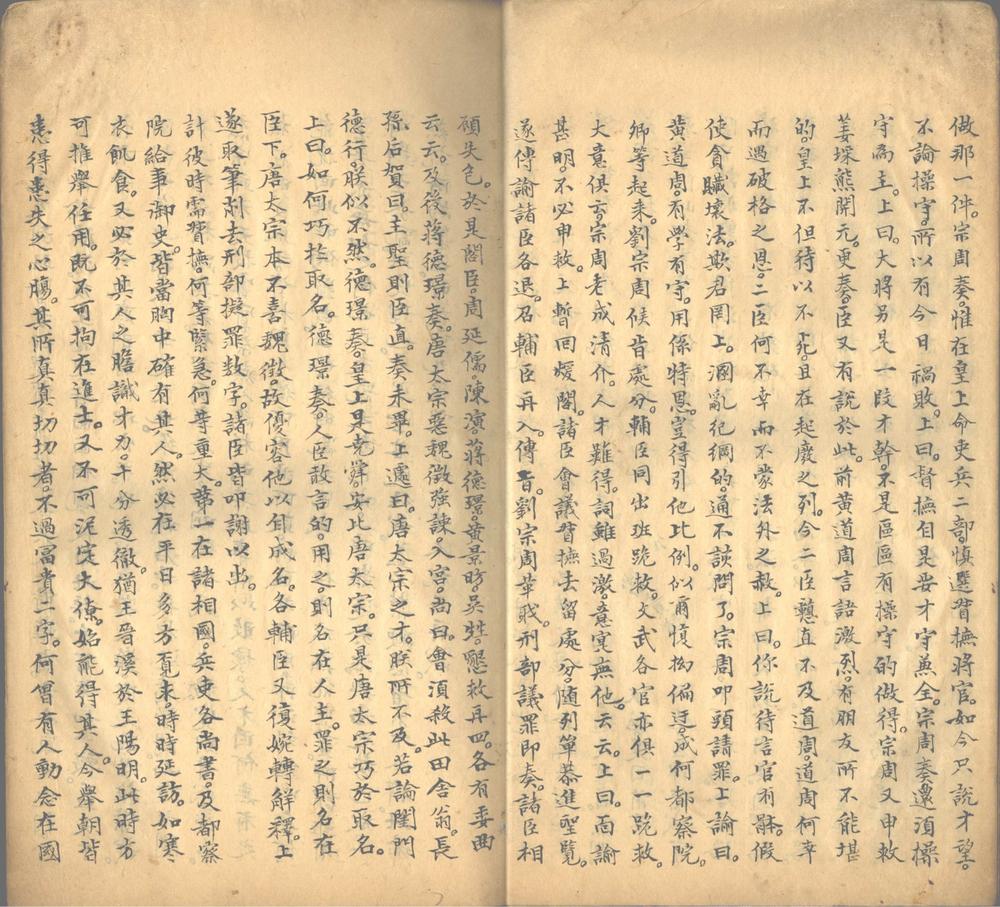 做那一件。宗周奏。惟在皇上命吏兵二部慎選督撫將官。如今只說才望。
不論操守。所以有今日禍敗。上曰。督撫自是要才守兼全。宗周奏。還須操
守為主。上曰。大將另是一段才幹。不是區區有操守的做得。宗周又申救
姜埰熊開元。更奏。臣又有說於此。前黃道周言語激烈。有朋友所不能堪
的。皇上不但待以不死。且在起廢之列。今二臣戇直不及道周。道周何幸
而遇破格之恩。二臣何不幸而不蒙法外之赦。上曰。你說待言官有體。假
使貪贓壞法。欺君罔上。溷亂紀綱的。通不該問了。宗周叩頭請罪。上諭曰。
黃道周。有學有守。用係特恩。豈得引他比例。似爾愎拗偏迂。成何都察院。
卿等起來。劉宗周候旨處分。輔臣同出班跪救。文武各官亦俱一一跪救。
大意俱言。宗周老成清介。人才難得。詞雖過激。意寔無他。云云。上曰。面諭
甚明。不必申救。上暫回煖閣。諸臣會議督撫去留處分。隨列單恭進聖覽。
遂傳諭諸臣各退。召輔臣再入。傳旨。劉宗周革職。刑部議罪即奏。諸臣相
顧失色。於是閣臣。周延儒。陳演。蔣德璟。黃景昉。吳甡。懇救再四。各有委曲
云云。及後蔣德璟奏。唐太宗惡魏徵強諫。入宮。尚曰。會須殺此田舍翁。長
孫后賀曰。主聖則臣直。奏未畢。上遽曰。唐太宗之才。朕所不及。若論閨門
德行。朕似不然。德璟奏。皇上是堯舜。安比唐太宗。只是唐太宗巧於取名。
上曰。如何巧於取名。德璟奏。人臣敢言的。用之。則名在人主。罪之則名在
臣下。唐太宗本不喜魏徵。故優容他以自成名。各輔臣又復婉轉解釋。上
遂取筆削去刑部擬罪数字。諸臣皆叩謝以出。
計彼時需督撫。何等緊急。何等重大。第一在諸相國。兵吏各尚書。及都察
院給事御史。皆當胸中確有其人。然必在平日。多方覓来。時時延訪。如寒
衣飢食。又必於其人之膽識才力。十分透徹。猶王晉溪於王陽明。此時方
可推舉任用。既不可拘在進士。又不可泥定大僚。始能得其人。今舉朝皆
患得患失之心腸。其所真真切切者。不過富貴二字。何曾有人動念在國